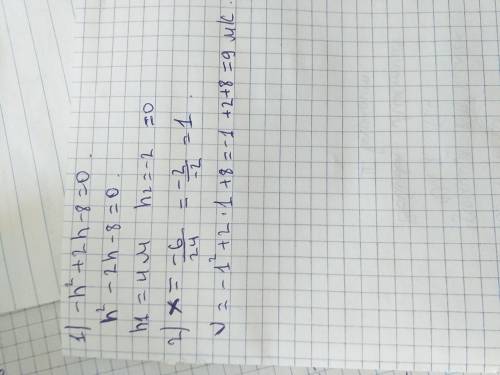 1) -h² + 2h - 8 = 0.
h² - 2h - 8 = 0.
h1 = 4м h2 = -2 ≡0
2) x = -6/24 = -2/-2 = 1.
V = -1² + 2·1 + 8 = -1 + 2 + 8 = 9 мк.